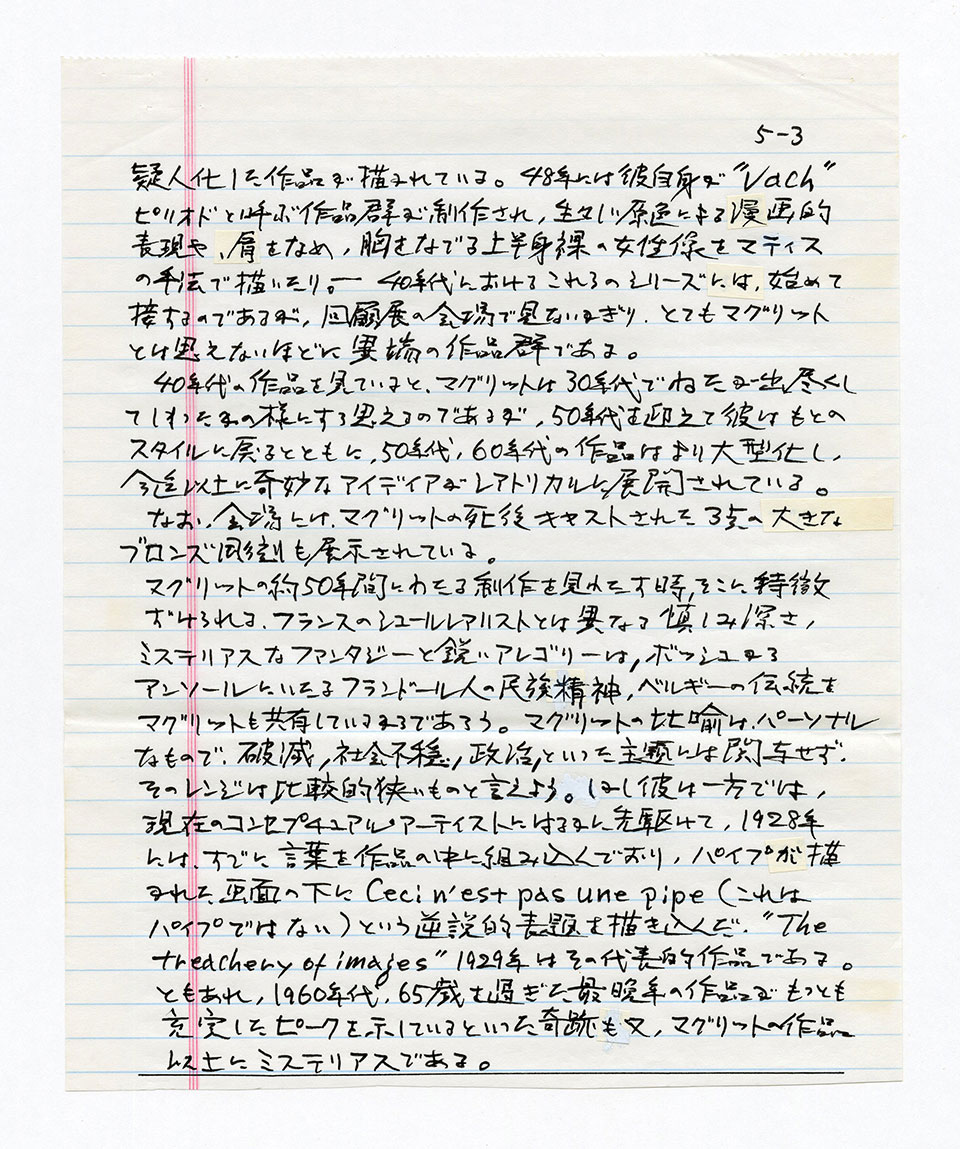 5-3
疑人化した作品が描かれている。48年には彼自身が"Vach"
ピリオドと呼ぶ作品群が制作され,生々しい原色による漫画的
表現や、肩をなめ,胸をなでる上半身裸の女性像をマティス
の手法で描いたり。— 40年代におけるこれらのシリーズには,始めて
接するのであるが,回顧展の会場で見ないかぎり.とてもマグリット
とは思えないほどに異端の作品群である。
40年代の作品を見ていると、マグリットは30年代でねたが出尽くし
てしまったかの様にする思えるのであるが,50年代を迎えて彼はもとの
スタイルに戻るとともに,50年代,60年代の作品はより大型化し,
今迄以上に奇妙なアイディアがレアトリカルに展開されている。
なお,会場には、マグリットの死後キャストされた3点の大きな
ブロンズ周刻も展示されている。
マグリットの約50年間にわたる制作を見わたす時,そこに特徴
ずけられる、フランスのシュールレアリストとは異なる慎しみ深さ,
ミステリアスなファンタジーと鋭いアレゴリーは,ボッシュから
アンソールにいたるフランドール人の民族精神,ベルギーの伝統を
マグリットも共有しているからであろう。マグリットの比喩は、パーソナル
なもので、破滅,社会不穏,政治,といった主題には関与せず.
そのレンジは比較的狭いものと言えよう。しかし彼は一方では,
現在のコンセプチュアル・アーティストにはるかに先駆けて,1928年
には、すでに言葉を作品の中に組み込んでおり,パイプが描
かれた画面の下にCeci n'est pas une pipe (これは
パイプではない)という逆説的表題を描き込んだ."The
treachery of images" 1929年はその代表的作品である。
ともあれ,1960年代,65歳を過ぎた最晩年の作品がもっとも
充実したピークを示しているといった奇跡も又,マグリットの作品
以上にミステリアスである。